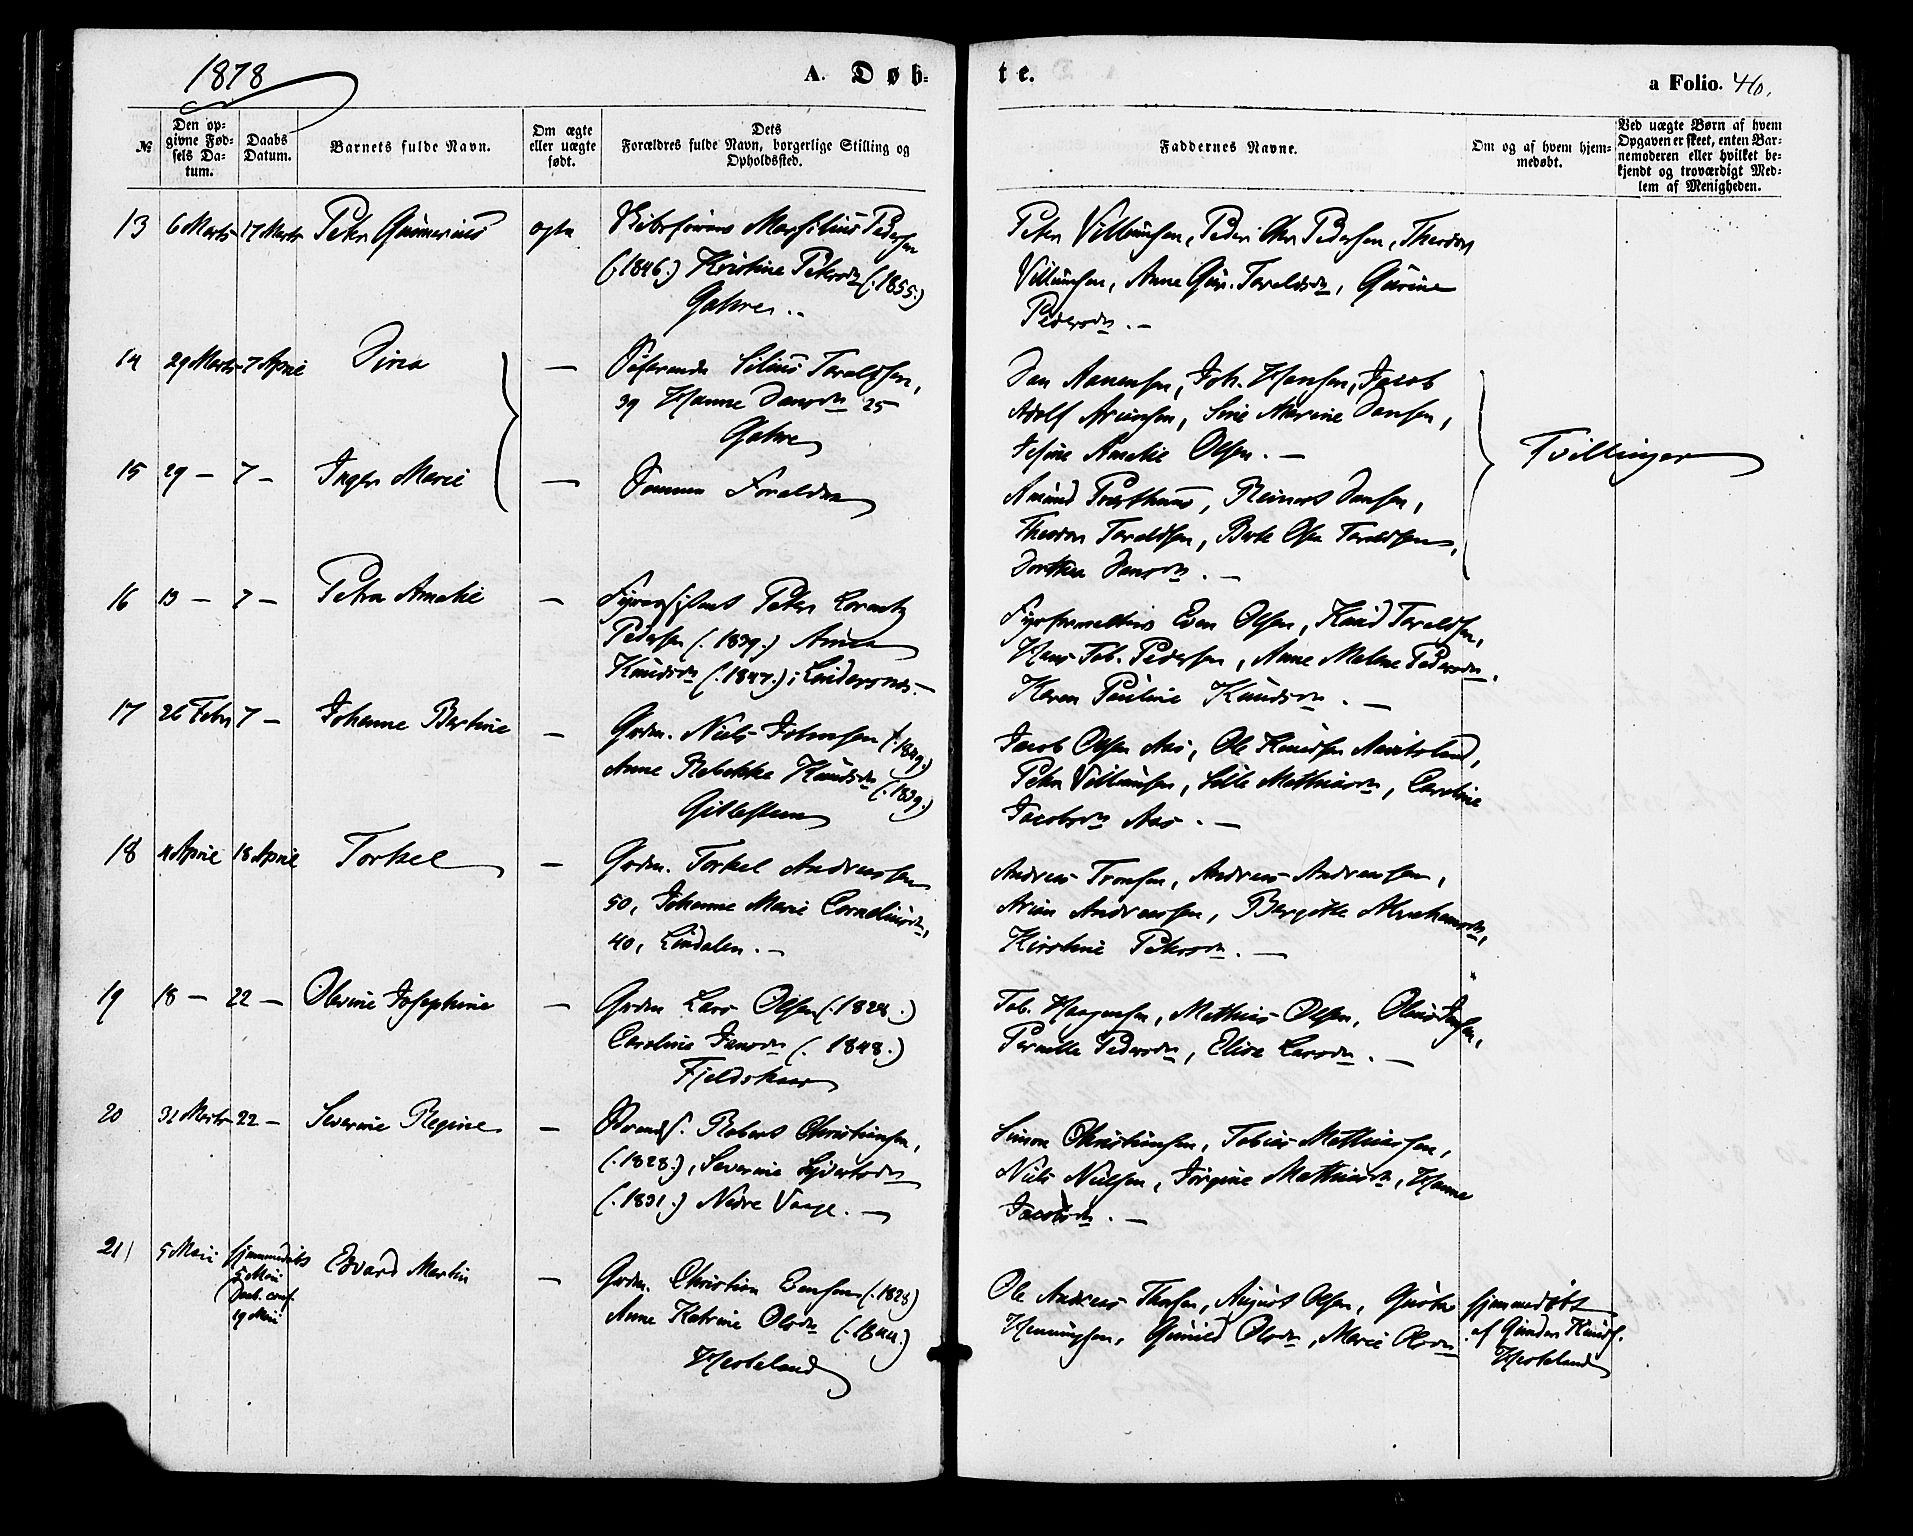 1878
A. Døb-
te.
a Folio. 40.
№
Den op-
givne Fød-
sels Da-
tum.
Daabs
Datum.
Barnets fulde Navn.
Om ægte
eller uægte
født.
Dets
Forældres fulde Navn, borgerlige Stilling og
Opholdssted.
Faddernes Navne.
Om og af hvem hjem-
medøbt.
Ved uægte Børn af hvem
Opgaven er skeet, enten Bar-
nemoderen eller hvilket be-
kjendt og troværdigt Med-
lem af Menigheden.
13 6 Marts 17 Marts Peter Gunnerius ægte
Pedersen
(:1846:) Kristine Petersdn (:1855:)
Gahre
Peter Villumsen, Peder Chr. Pedersen, Theodor
Villumsen, Anne Gur. Taraldsdn, Gurine
Pedersdn. —
14 29 Marts 7 April Dina —
Søfarende Silius Taraldsen,
39 Hanne Dansdn 25
Gahre
Dan Aanensen, Joh. Hansen, Jacob
Adolf Ariansen, Sine Marine Dansen,
Amalie Olsen. —
Tvillinger
15 29 — 7 — Inger Marie —
Samme Forældre
Amund Præsthuus, Reinert Dansen,
Theodor Taraldsen, Berte Olea Taraldsen,
Dorthea Dansdn. —
16 13 — 7 — Petra Amalie —
Fyrassistent Peter Lorentz
Pedersen (:1839:) Anna
Knudsdn (:1847:); Lindersnes. —
Fyrforvalter Even Olsen, Knud Taraldsen,
Hans Tob. Pedersen, Anne Malene Pedersdn.
Karen Pauline Knudsdn. —
17 26 Febr 7 — Johanne Bertine —
Grdm. Niels Johnsen (:1849:)
Anne Rebekka Knudsdn (:1839:)
Gitlesteen
Jacob Olsen Aas, Ole Knudsen
Peter Villumsen, Sille Mathiasdn, Caroline
Jacobsdn Aas. —
18 4 April 18 April Torkel —
Grdm. Torkel Andreassen
50, Johanne Marie Corneliusdn,
40, Lindalen. —
Andreas Tronsen, Andreas Andreassen,
Arian Andreassen, Bergitte Abrahamsdn,
Kirstine Petersdn. —
19 18 — 22 — Olevine Josephine —
Grdm Lars Olsen (:1828:)
Caroline Jansdn (:1848:)
Fjeldskaar
Tob. Haagensen, Mathias Olsen, Olaus Jensen,
Pernille Pedersdn, Elisa Larsdn. —
20 31 Marts 22 — Severine Regine —
Robert Christiansen,
(:1828:), Severine Sivertsdn
(:1831:) Nedre Vaage. —
Simon Christiansen, Tobias Mathiassen,
Niels Nielsen, Jørgine Mathiasdn, Hanne
Jacobsdn. —
21 5 Mai hjemmedøbt
5 Mai
Daab. conf.
19 Mai
Edvard Martin —
Grdm. Christian Evensen (:1828)
Anne Katrine Olsdn (:1844:)
Hesteland
Ole Andreas August Olsen, Gustav
Henningsen, Gunild Olsdn, Marie Olsdn
hjemmedøbt
af Gunder Knuds.
Hesteland